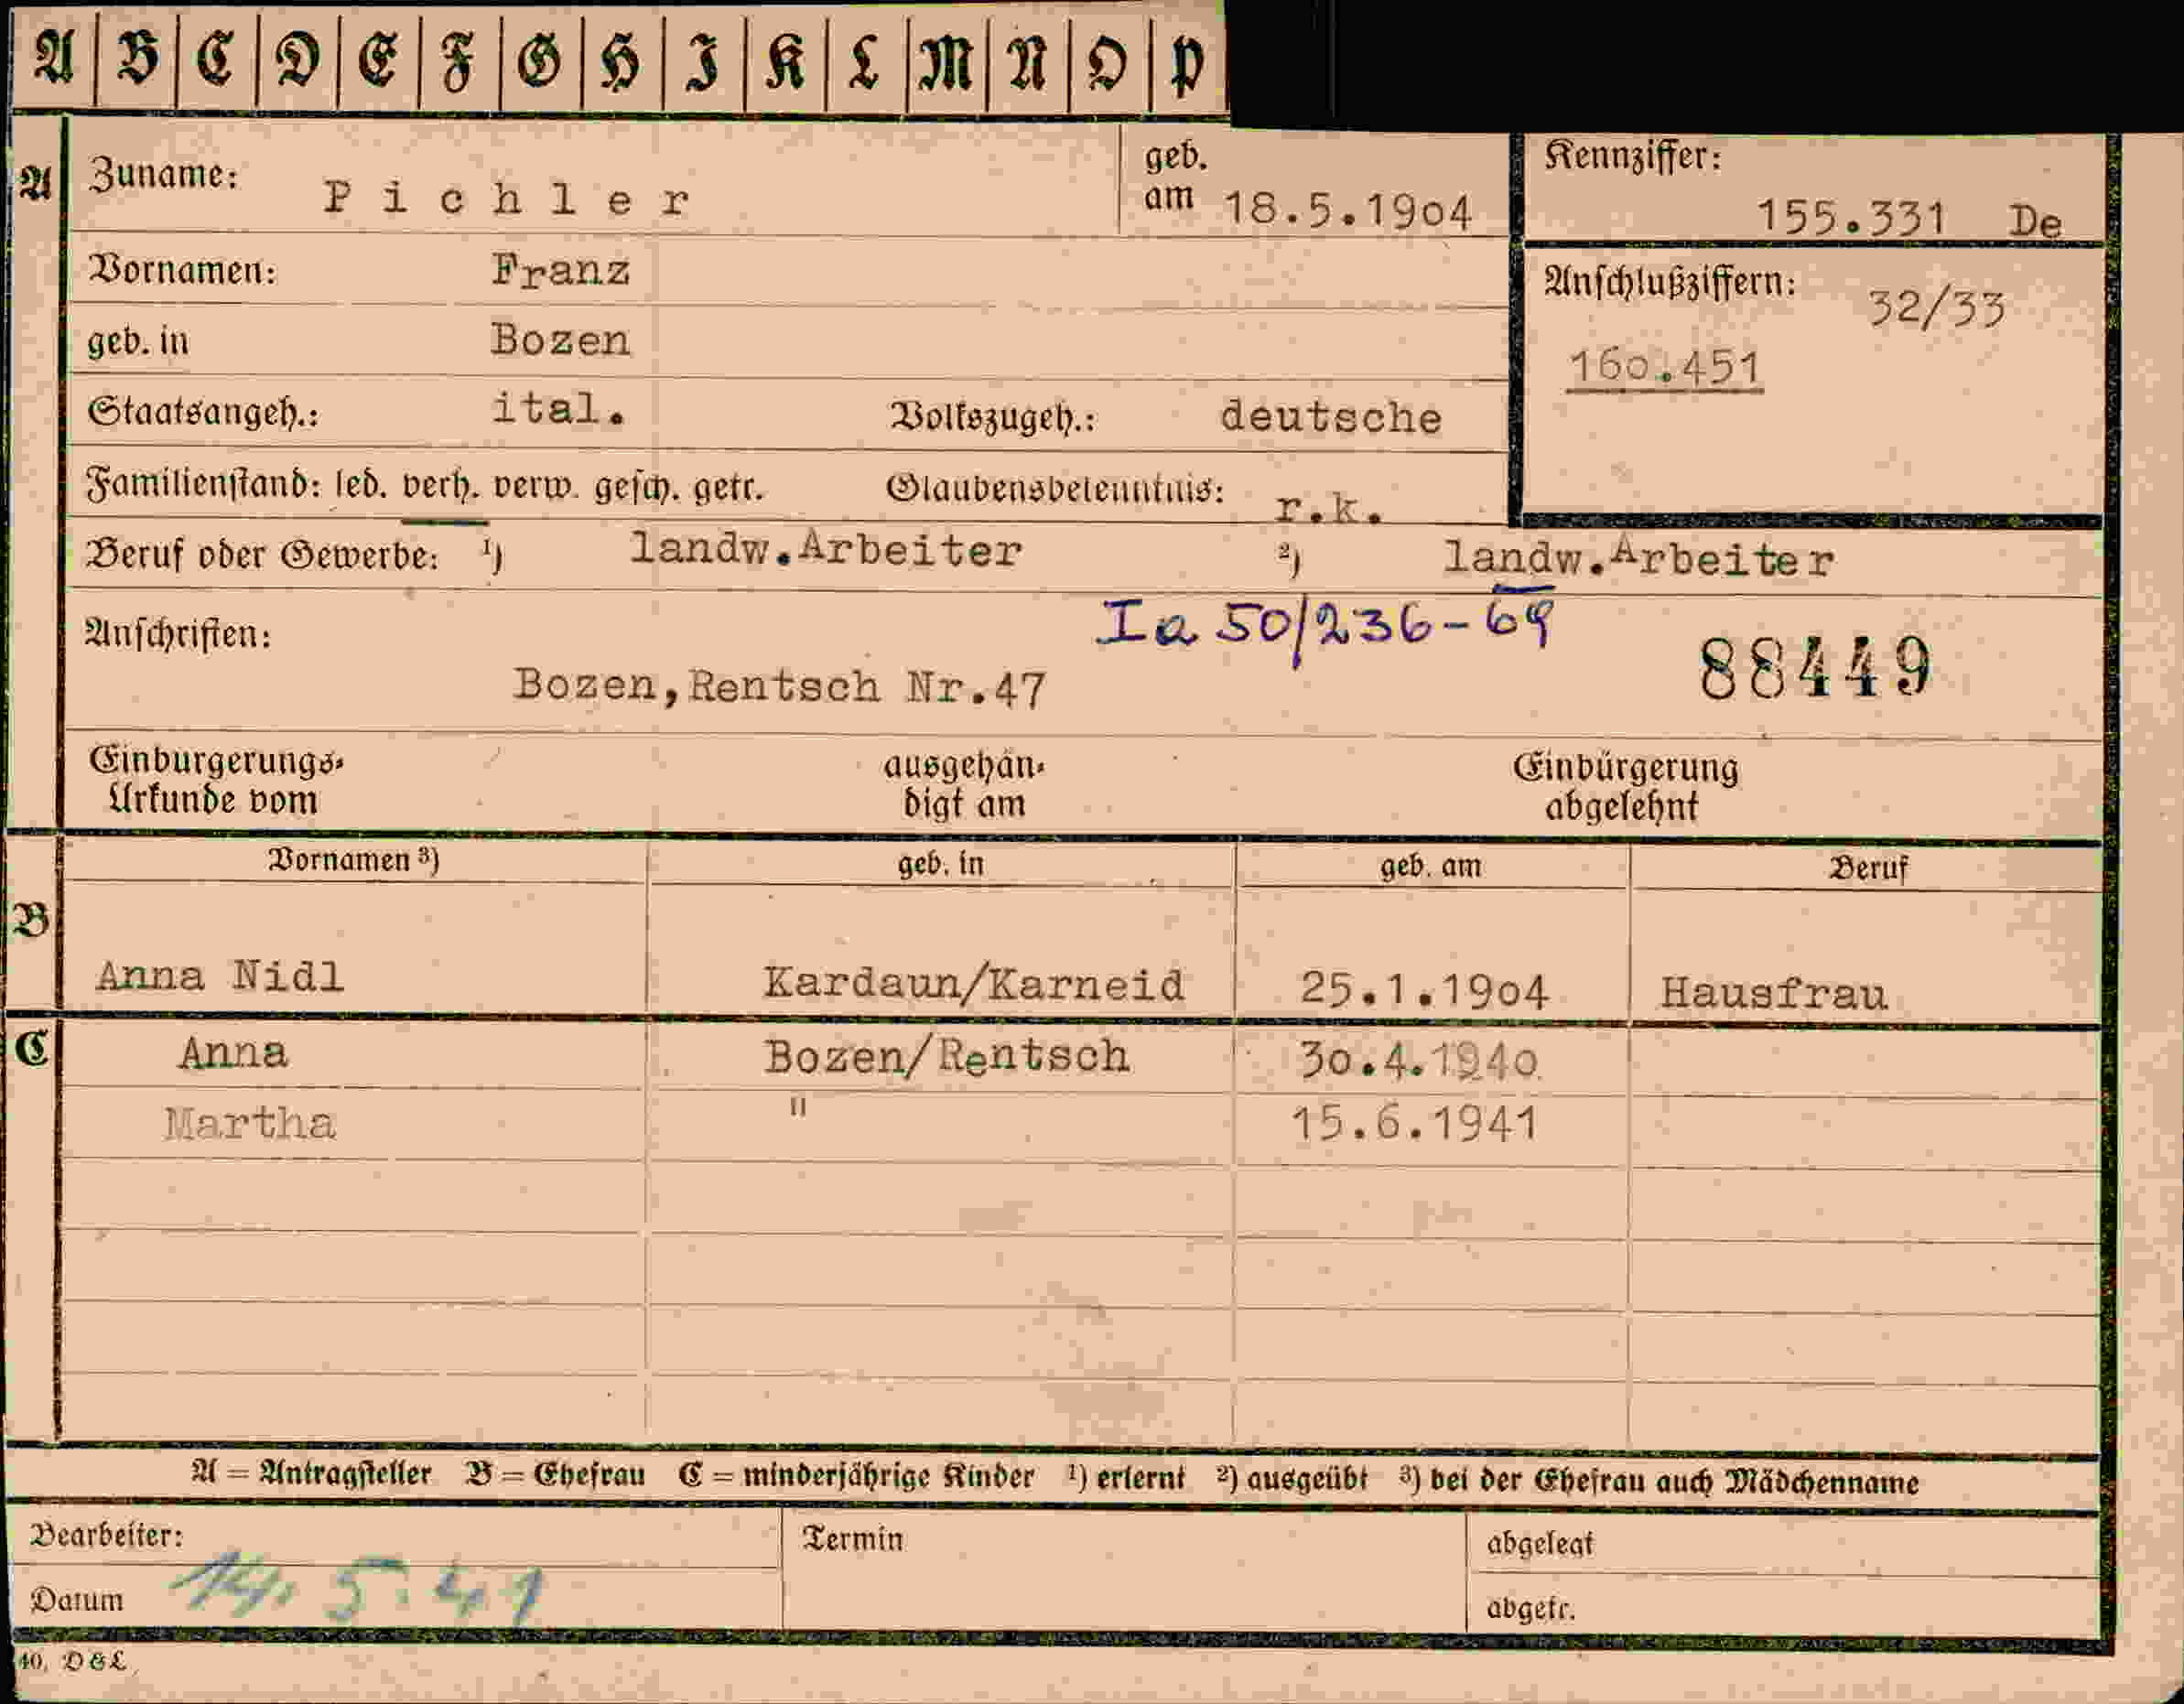 A B C D E F G H I K L M N O P
A Zuname: Pichler geb. am 18.5.1904 Kennziffer: 155.331 De
Vornamen: Franz Anschlußziffern: 32/33
geb. in Bozen 160.451
Staatsangeh.: ital. Volkszugeh.: deutsche
Familienstand: led. verh. verw. gesch. getr. Glaubensbekenntnis: r.k.
Beruf oder Gewerbe: 1) landw.Arbeiter 2) landw.Arbeiter
Ia 50/236-69
Anschriften: 88449
Bozen,Rentsch Nr.47
Einbürgerungs- ausgehän- Einbürgerung
Urkunde vom digt am abgelehnt
Vornamen 3) geb. in geb. am Beruf
B
Anna Nidl Kardaun/Karneid 25.1.1904 Hausfrau
C Anna Bozen/Rentsch 30.4.1940
Martha " 15.6.1941
A = Antragsteller B = Ehefrau C = minderjährige Kinder 1) erlernt 2) ausgeübt 3) bei der Ehefrau auch Mädchenname
Bearbeiter: Termin abgelegt
Datum 14. 5. 41 abgetr.
40, DOL